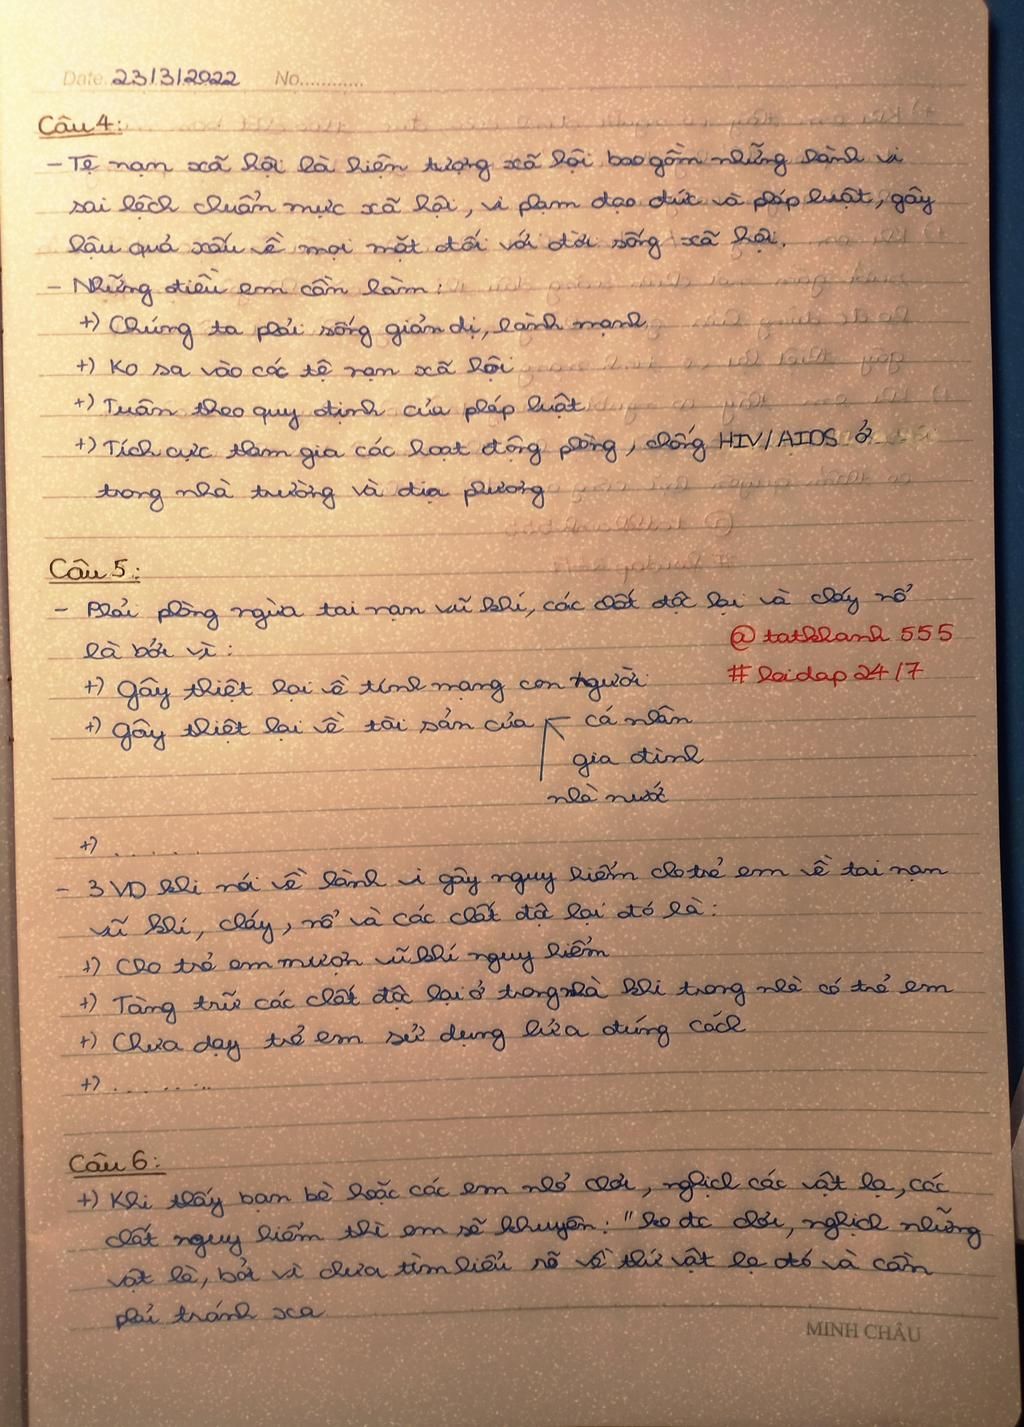 Date. 23/3/2022 No............
Câu 4:
- Tệ nạn xã hội là hiện tượng xã hội bao gồm những hành vi
sai lệch chuẩn mực xã hội, vi phạm đạo đức và pháp luật, gây
hậu quả xấu về mọi mặt đối với đời sống xã hội.
- Những điều em cần làm:
+) Chúng ta phải sống giản dị, lành mạnh
+) Ko sa vào các tệ nạn xã hội
+) Tuân theo quy định của pháp luật
+) Tích cực tham gia các hoạt động phòng, chống HIV/AIDS ở
trong nhà trường và địa phương
Câu 5:
- Phải phòng ngừa tai nạn vũ khí, các chất độc hại và cháy nổ
là bởi vì:
@tathkhanh 555
#hoidap 24/7
+) Gây thiệt hại về tính mạng con người
+) Gây thiệt hại về tài sản của cá nhân
gia đình
nhà nước
+) ......
- 3 VD khi nói về hành vi gây nguy hiểm cho trẻ em về tai nạn
vũ khí, cháy, nổ và các chất độc hại đó là:
+) Cho trẻ em mượn vũ khí nguy hiểm
+) Tàng trữ các chất độc hại ở trong nhà khi trong nhà có trẻ em
+) Chưa dạy trẻ em sử dụng lửa đúng cách
+) .......
Câu 6:
+) Khi thấy bạn bè hoặc các em nhỏ chơi, nghịch các vật lạ, các
chất nguy hiểm thì em sẽ khuyên: "ko đc chơi, nghịch những
vật lạ, bởi vì chưa tìm hiểu rõ về thứ vật lạ đó và cần
phải tránh xa
MINH CHÂU